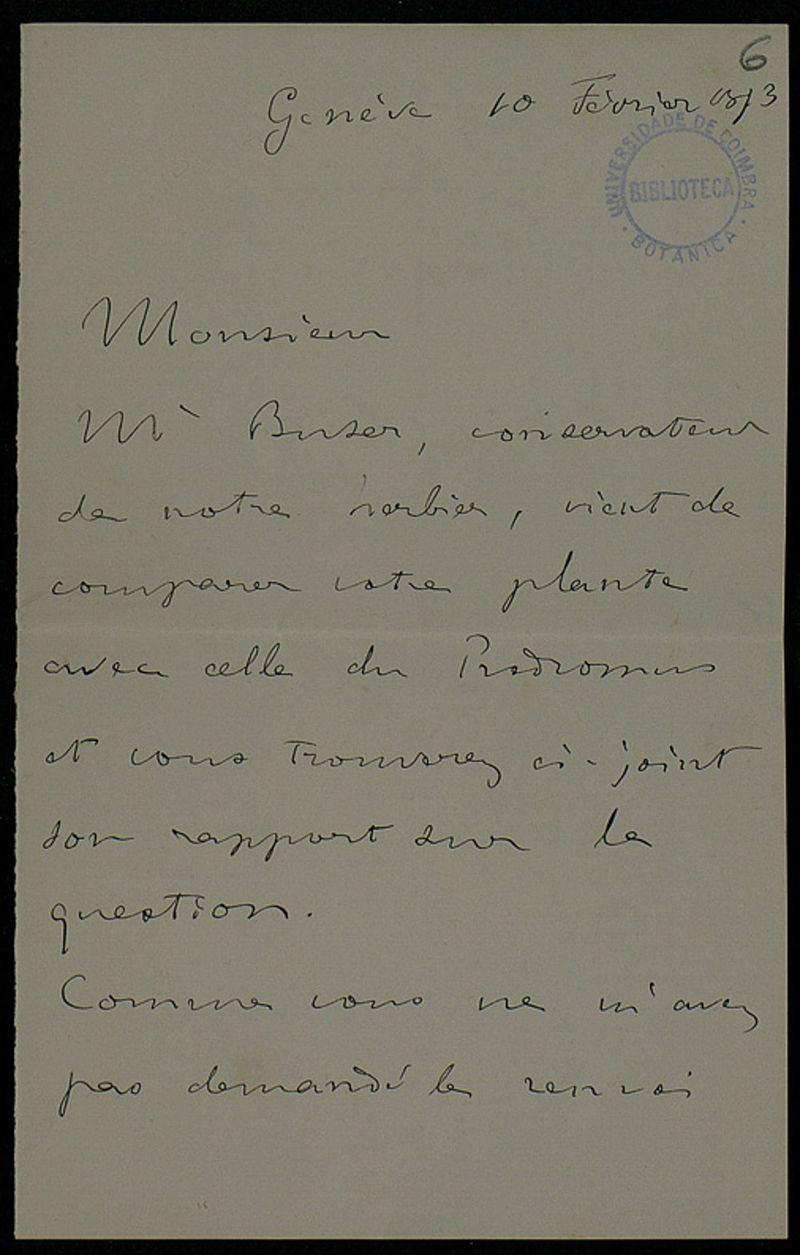 6
Genève 10 Février 1893
UNIVERSIDADE DE COIMBRA
BIBLIOTECA
BOTANICA
Monsieur
Mr Buser, conservateur
de notre herbier, vient de
comparer votre plante
avec celle du Prodromus
et vous trouverez ci-joint
son rapport sur la
question.
Comme vous ne m'avez
pas demandé le renvoi